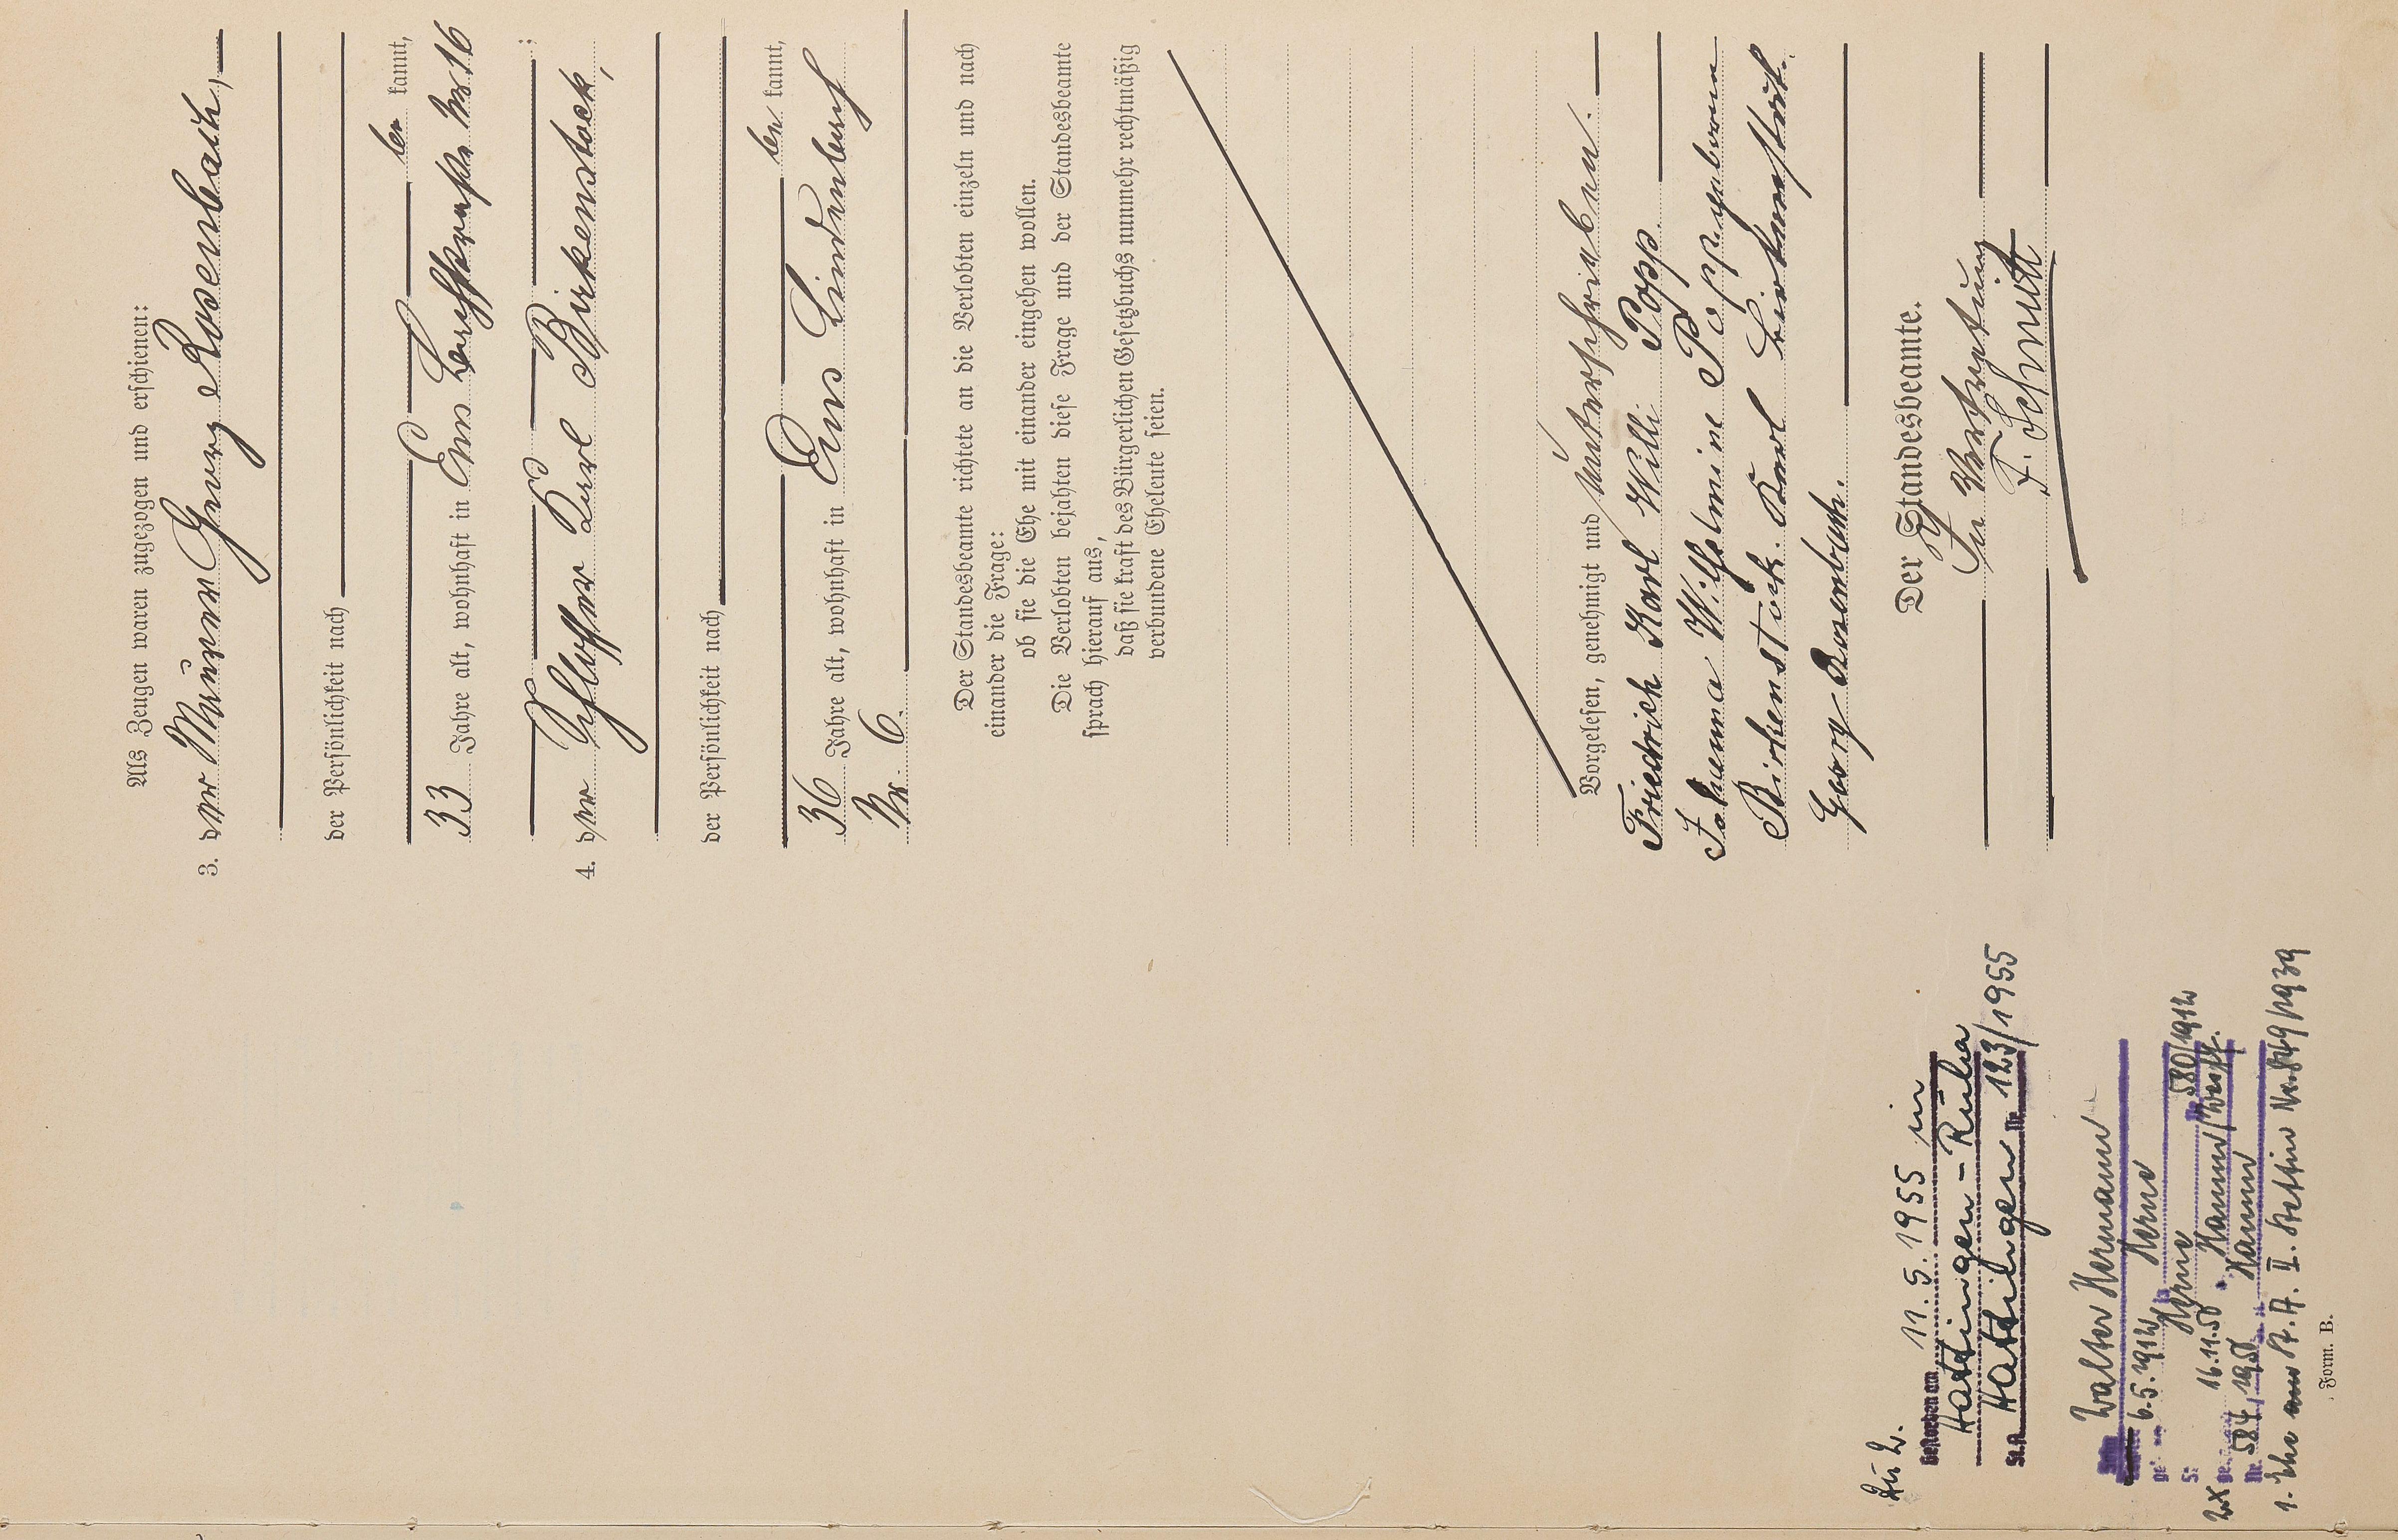 Als Zeugen waren zugezogen und erschienen:
3. der Maurer Georg Rosenbach,
der Persönlichkeit nach
kannt,
33 Jahre alt, wohnhaft in Ems Bachstraße Nr 16
;
4. der Schlosser Karl Birkenstock,
der Persönlichkeit nach
kannt,
36 Jahre alt, wohnhaft in Ems Lindenbach
Nr. 6.
Der Standesbeamte richtete an die Verlobten einzeln und nach
einander die Frage:
ob sie die Ehe mit einander eingehen wollen.
Die Verlobten bejahten diese Frage und der Standesbeamte
sprach hierauf aus,
daß sie kraft des Bürgerlichen Gesetzbuchs nunmehr rechtmäßig
verbundene Eheleute seien.
Vorgelesen, genehmigt und unterschrieben.
Friedrich Karl Willi Popp.
Johanna Wilhelmine Popp. geboren
Birkenstock. Karl Birkenstock.
Georg Rosenbach.
Der Standesbeamte.
In Vertretung
F. Schmitt
Zu 2.
Gestorben am 11. 5. 1955 in
Hattingen-Ruhr
St.A. Hattingen Nr. 123/1955
Walter Hermann
6.5.1912 Herne
Herne 580/1912
16.11.50 Hamm/Westf.
Nr. 584/1950 Hamm
1. Ehe St.A. II. Stettin /1939
Form. B.